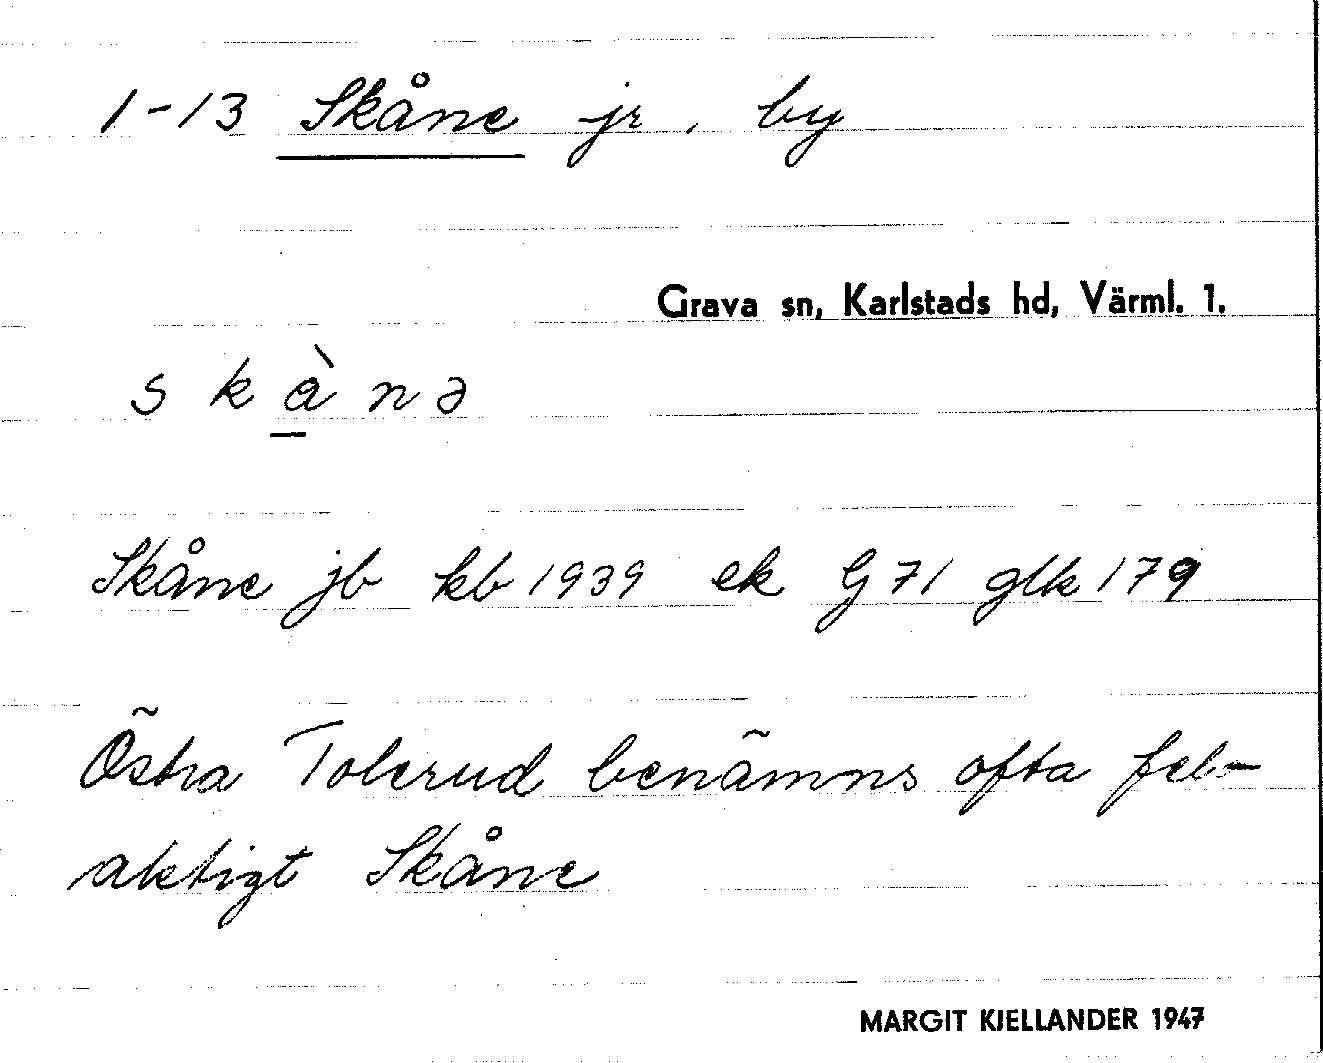 1-13 Skåne jr, by
Grava sn, Karlstads hd, Värml. 1.
s k å̀ n ə
Skåne jb kb 1939 ek G 71 glk 179
Östra Tolerud benämns ofta fel-
aktigt Skåne
MARGIT KJELLANDER 1947